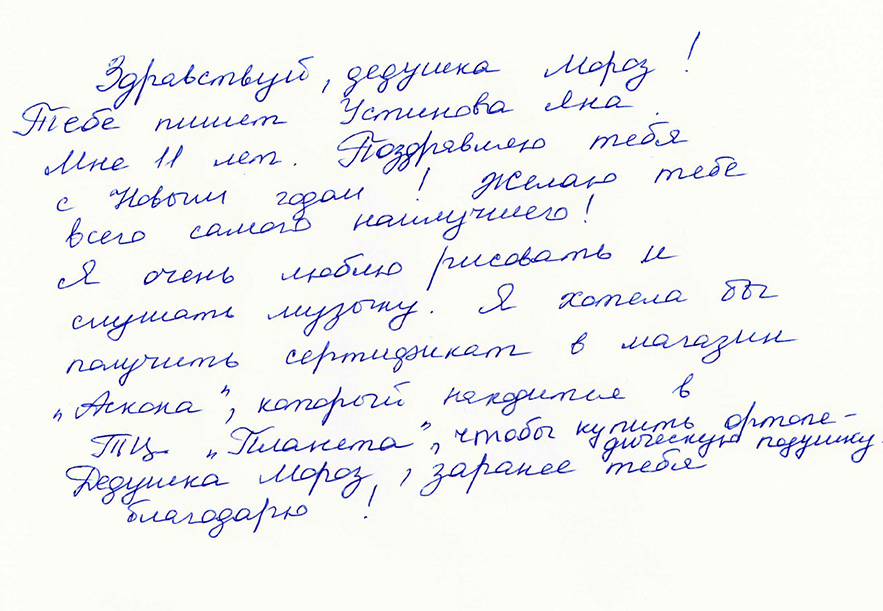 Здравствуй, дедушка Мороз!
Тебе пишет Устинова Яна.
Мне 11 лет. Поздравляю тебя
с Новым годом! Желаю тебе
всего самого наилучшего!
Я очень люблю рисовать и
слушать музыку. Я хотела бы
получить сертификат в магазин
„Аскона", который находится в
ТЦ „Планета", чтобы купить ортопе-
дическую подушку.
Дедушка Мороз, заранее тебя
благодарю!